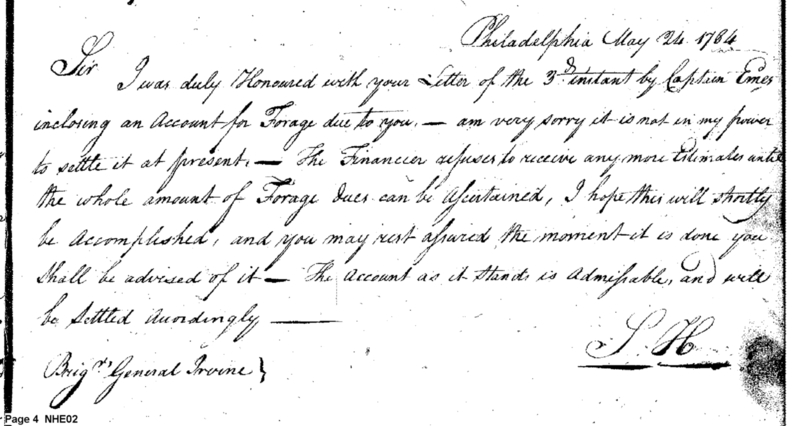 Philadelphia May 24 1784
Sir
I was duly Honoured with your Letter of the 3d instant by Captain Emes
inclosing an Account for Forage due to you, — am very sorry it is not in my power
to settle it at present, — The Financier refuses to receive any more Estimates until
the whole amount of Forage dues can be Ascertained, I hope this will shortly
be Accomplished, and you may rest assured the moment it is done you
shall be advised of it — The Account as it stands is Admissable, and will
be Settled Accordingly —
S. H
Brigr General Irvine }
Page 4 NHE02